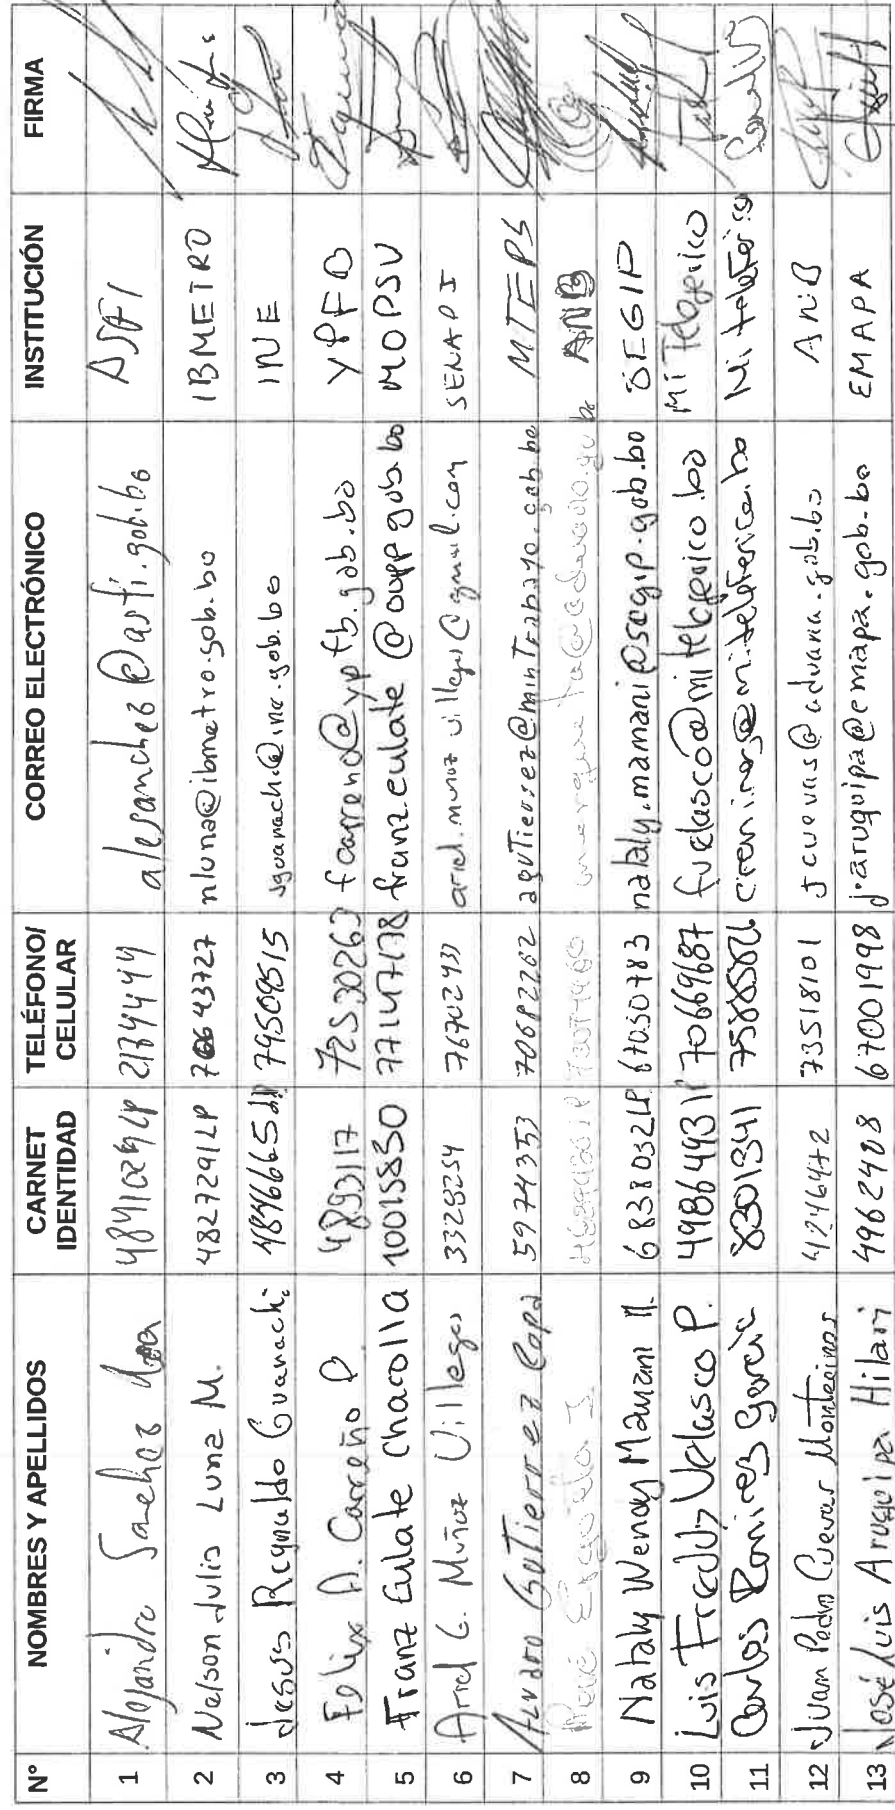 N° NOMBRES Y APELLIDOS CARNET IDENTIDAD TELÉFONO/ CELULAR CORREO ELECTRÓNICO INSTITUCIÓN FIRMA
1 Alejandro Sanchez 2174444 alesanchez@asfi.gob.bo ASFI
2 Nelson Julio Luna M. 4827291LP 70643727 nluna@ibmetro.gob.bo IBMETRO
3 Jesus Reynaldo Guanachi 4846665 LP 79509515 jguanachi@ine.gob.bo INE
4 Felix A. Carreño P 4893117 72530263 fcarreno@ypfb.gob.bo YPFB
5 Franz Eulate Chacolla 10015830 77147178 franz.eulate@oopp.gob.bo MOPSV
6 Ariel G. Muñoz Villegas 3328254 76702937 ariel.munoz.villegas@gmail.com SENAPI
7 Alvaro Gutierrez Copa 5974353 70682262 agutierrez@mintrabajo.gob.bo MTEPS
8 ANB
9 Nataly Wendy Mamani M. 6838032LP 67030783 nataly.mamani@segip.gob.bo SEGIP
10 Luis Freddy Velasco P. 4986493LP 70669687 fvelasco@miteleferico.bo Mi Teleferico
11 Carlos Ramirez Garcia 8301341 cramirez@miteleferico.bo Mi teleferico
12 Juan Pedro Cuevas Montecinos 4246472 73518101 jcuevas@aduana.gob.bo ANB
13 José Luis Aruquipa Hilari 4962408 67001998 j.aruquipa@emapa.gob.bo EMAPA